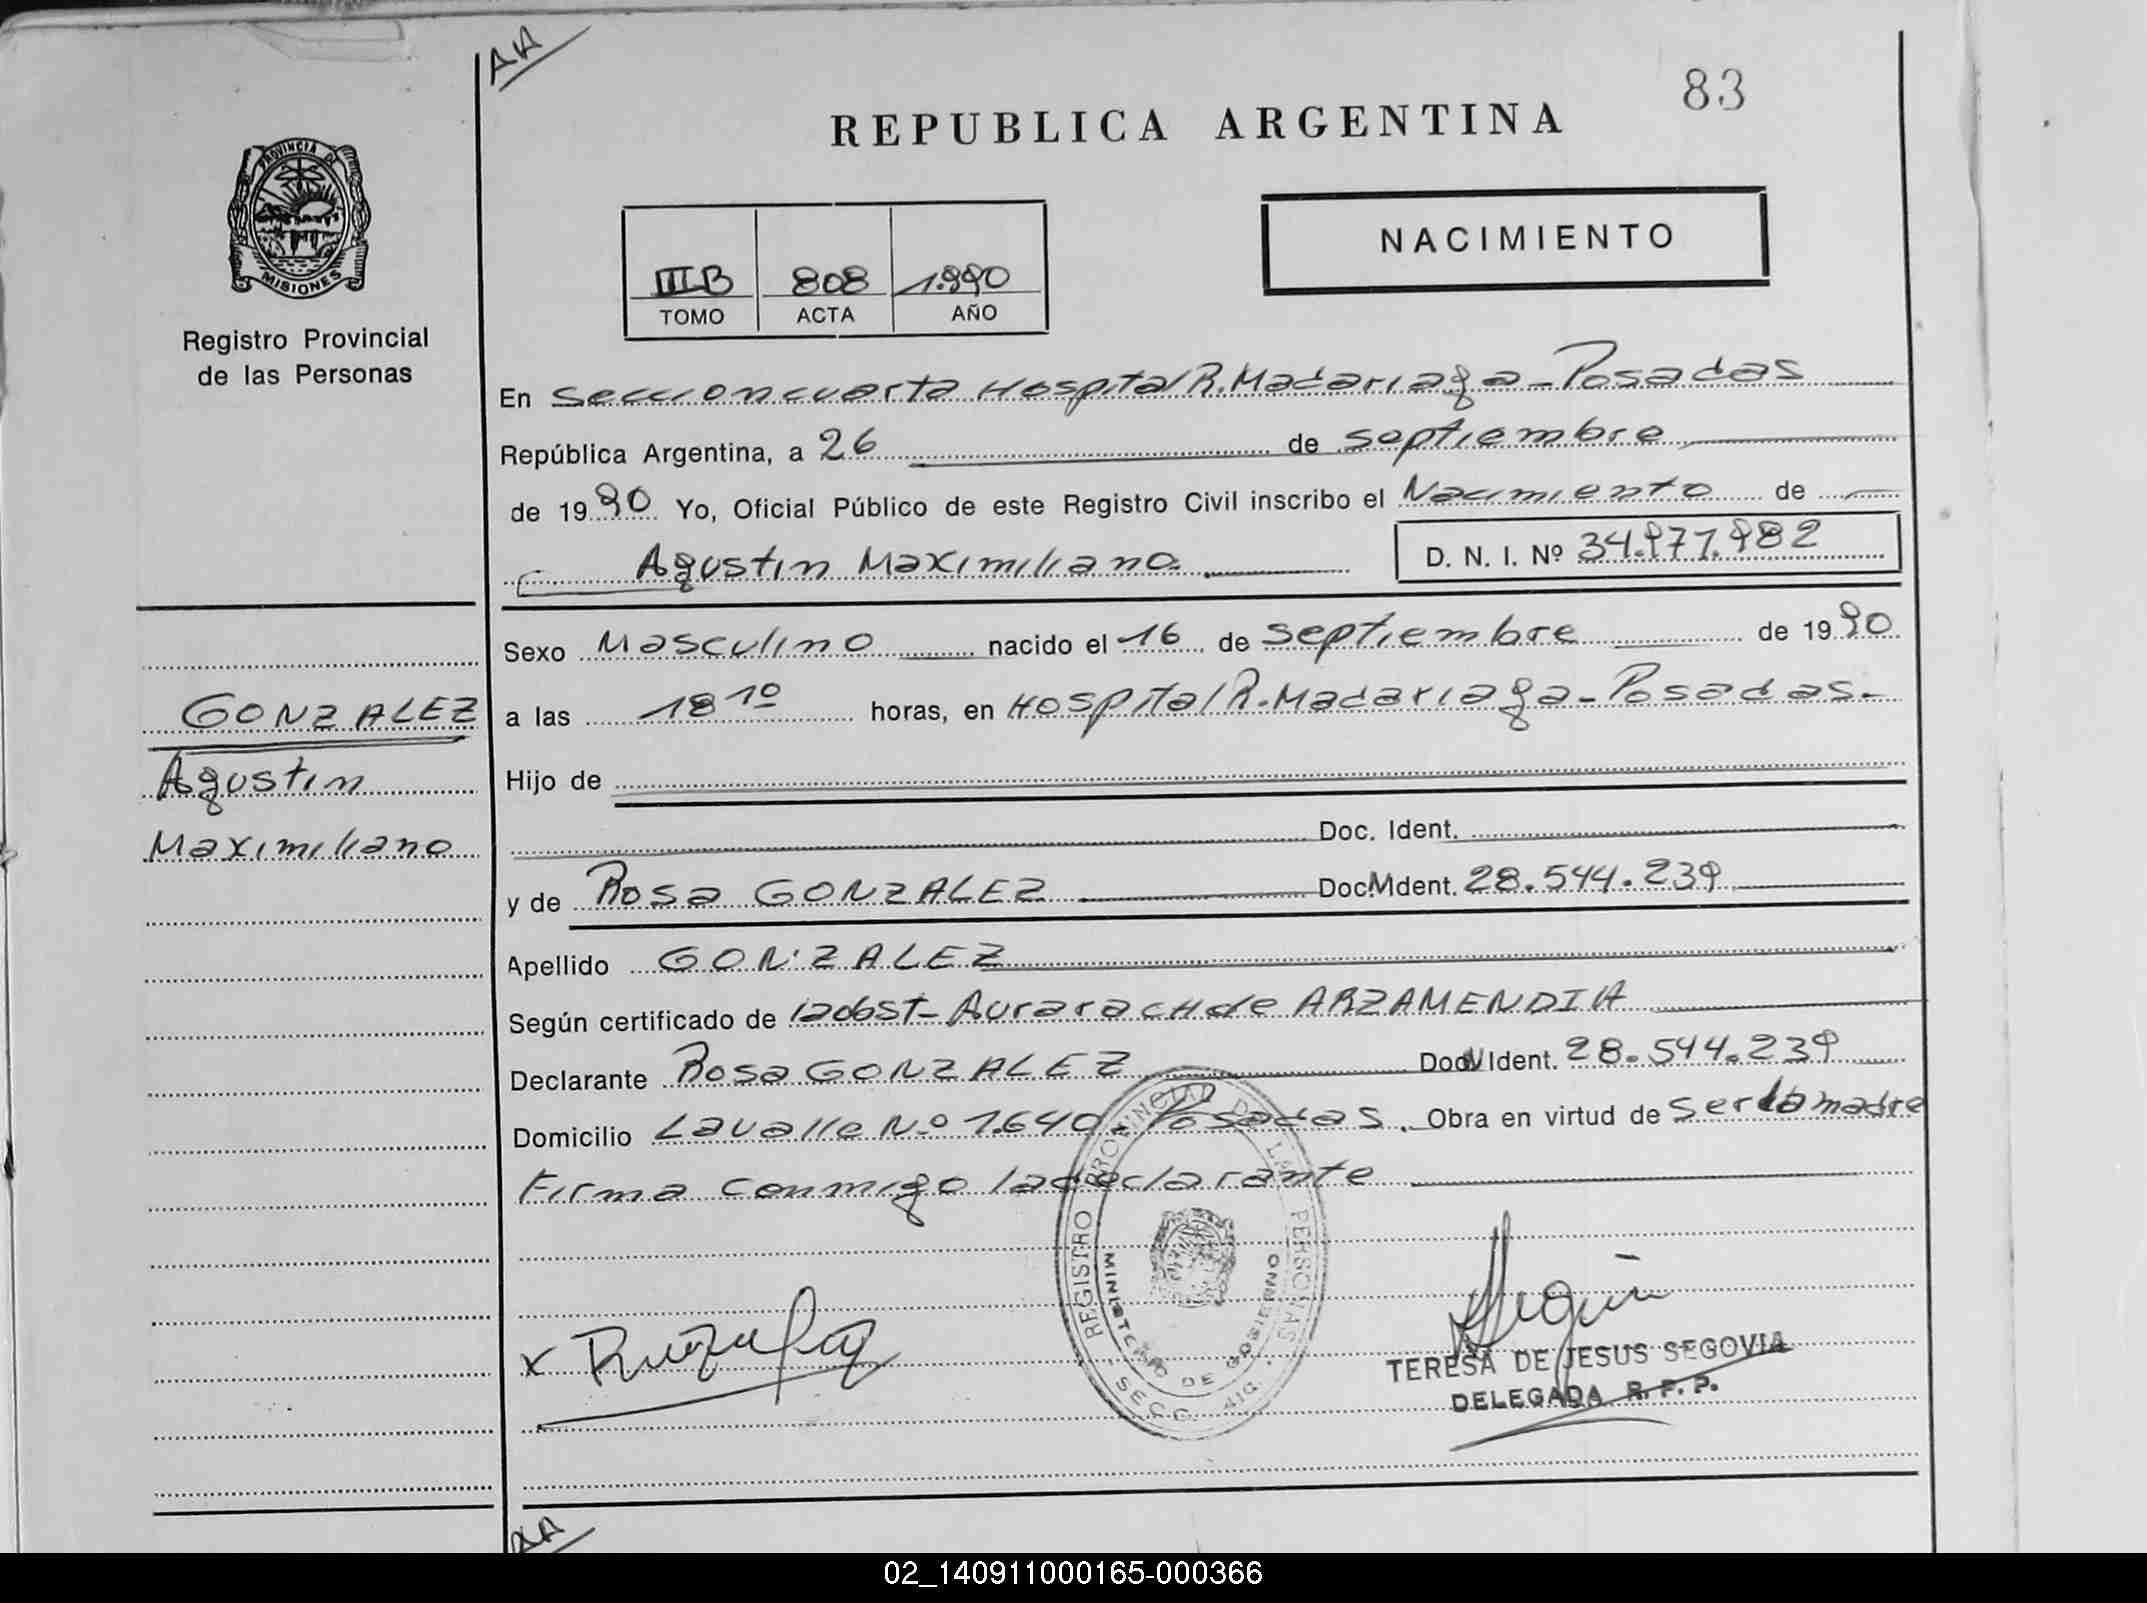 AA
83
REPUBLICA ARGENTINA
PROVINCIA DE
MISIONES
Registro Provincial
de las Personas
NACIMIENTO
III B 808 1.990
TOMO ACTA AÑO
En Seccion cuarta Hospital R. Madariaga - Posadas
República Argentina, a 26 de septiembre
de 1990 Yo, Oficial Público de este Registro Civil inscribo el Nacimiento de
Agustin Maximiliano. D. N. I. Nº 34.977.982
Sexo Masculino nacido el 16 de septiembre de 1990
GONZALEZ
Agustin
Maximiliano
a las 18 10 horas, en Hospital R. Madariaga - Posadas -
Hijo de
Doc. Ident.
y de Rosa GONZALEZ Doc. Ident. 28.544.239
Apellido GONZALEZ
Según certificado de la obst - Aurora CH de ARZAMENDIA
Declarante Rosa GONZALEZ Doc Ident. 28.544.239
Domicilio Lavalle Nº 1.640 - Posadas. Obra en virtud de ser la madre
Firma conmigo la declarante
REGISTRO PROVINCIAL DE LAS PERSONAS
MINISTERIO DE GOBIERNO
SECC. 4ta.
x
TERESA DE JESUS SEGOVIA
DELEGADA R. P. P.
AA
02_140911000165-000366